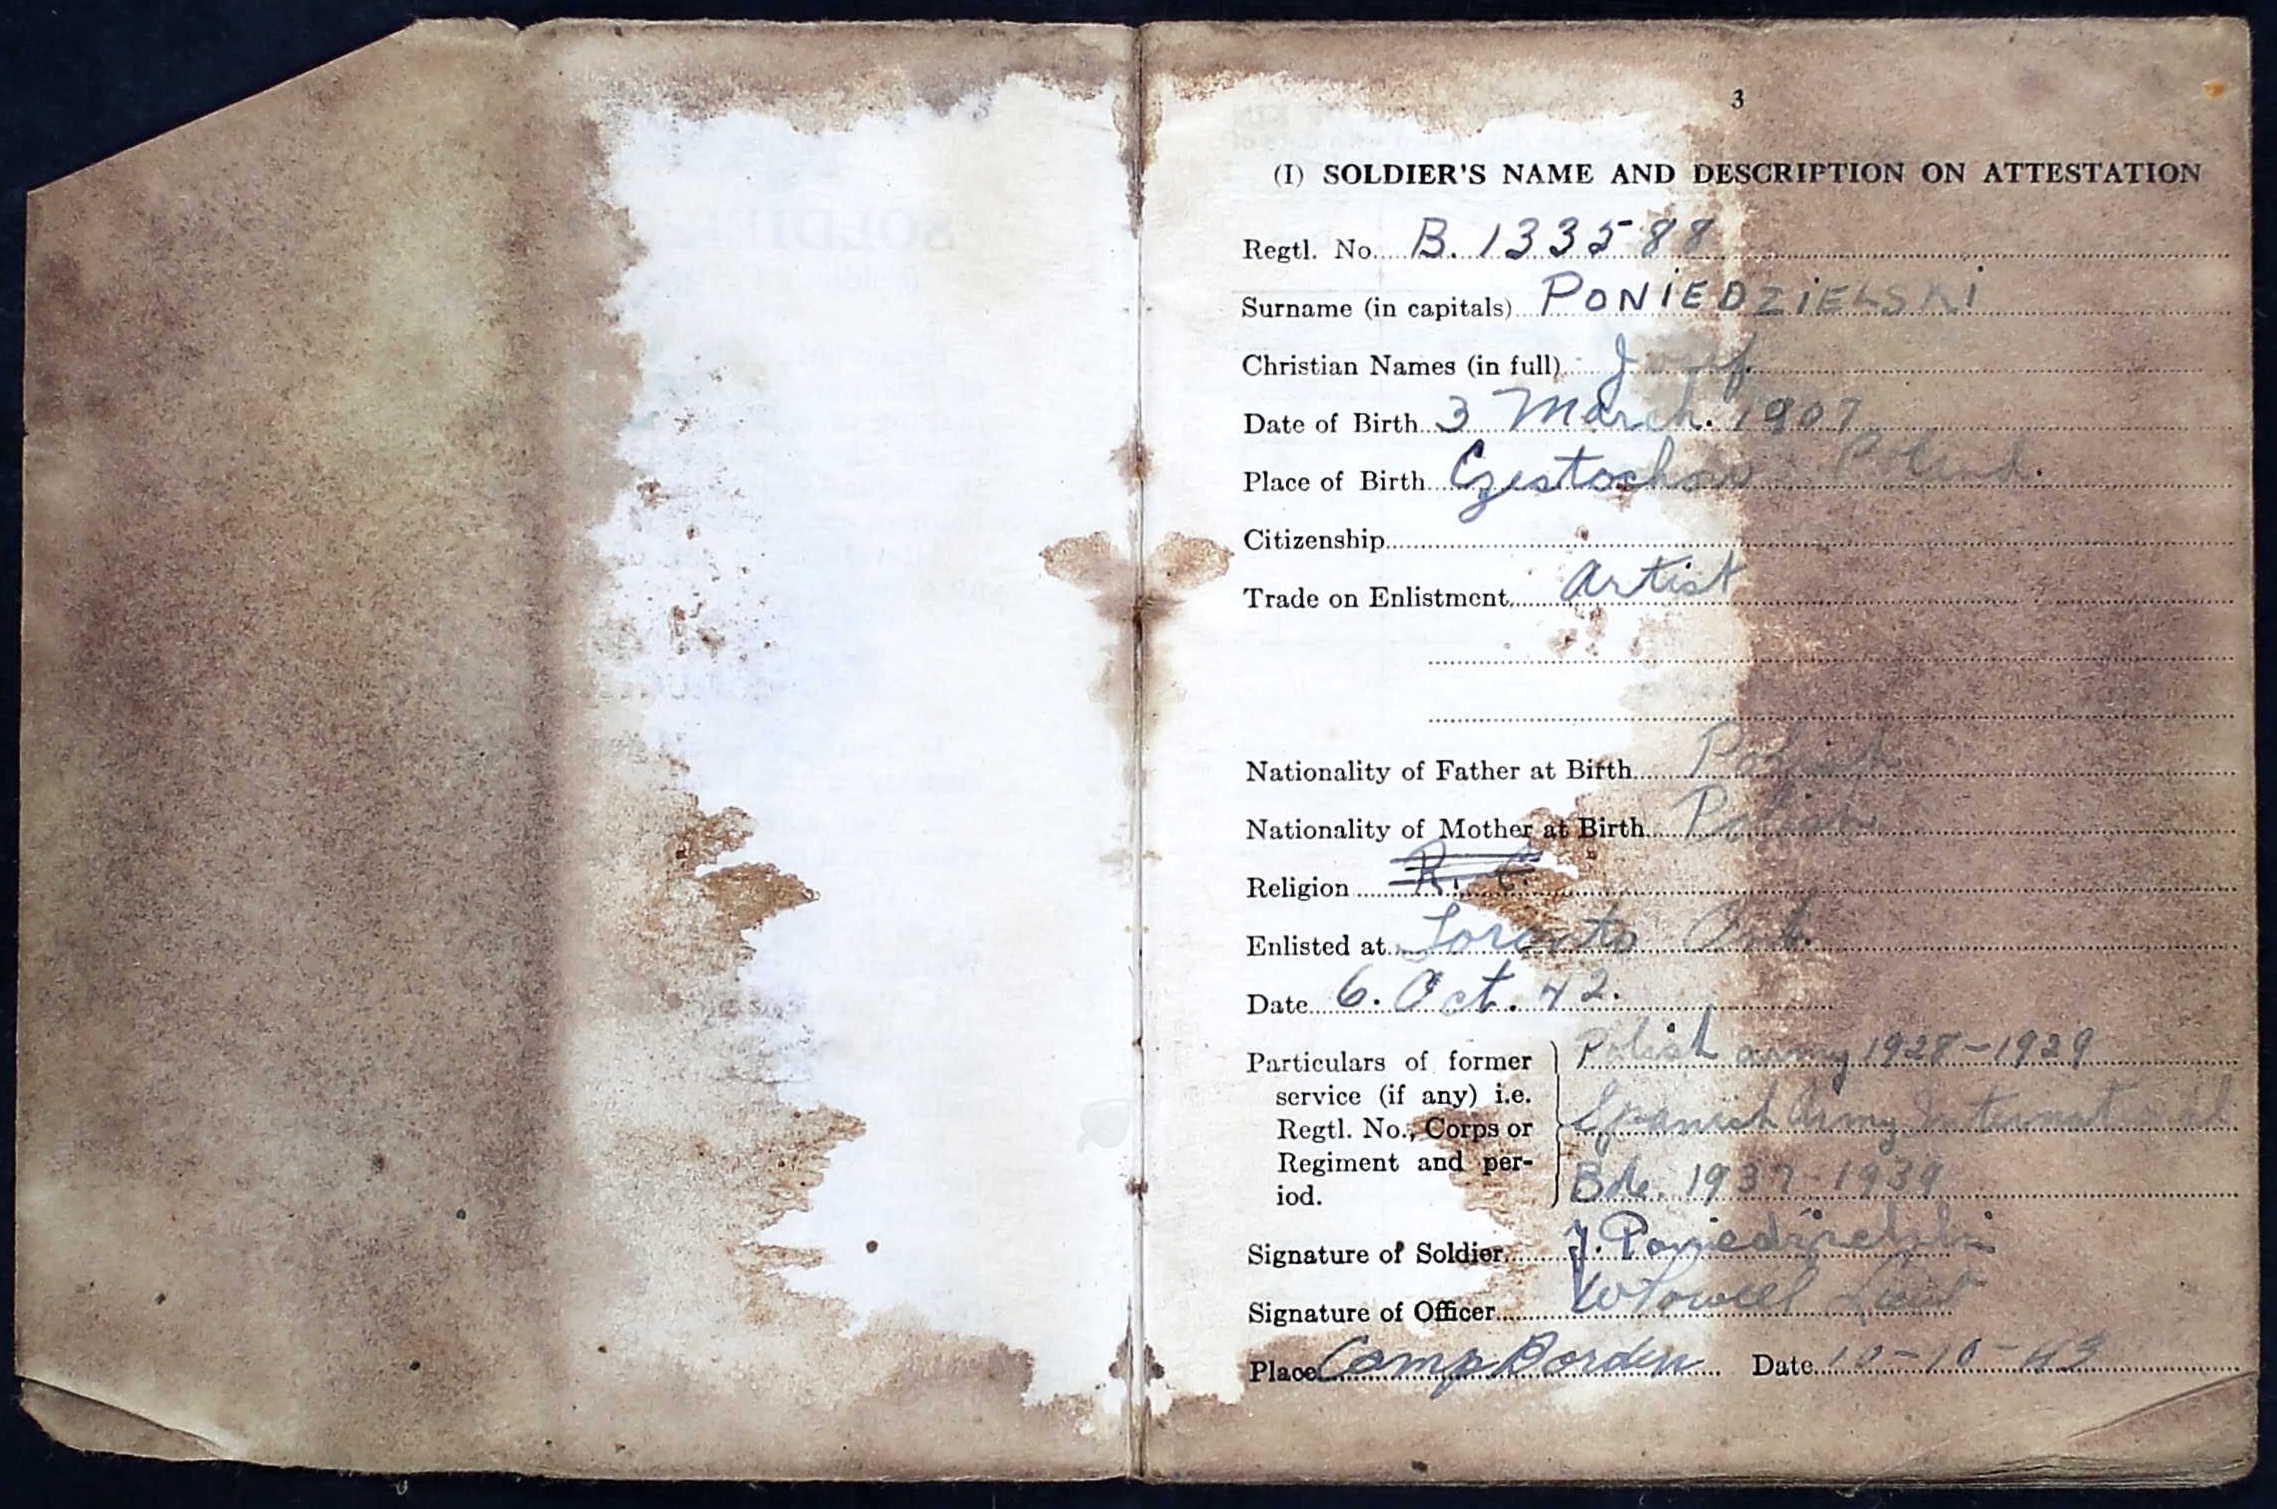 3
(I) SOLDIER'S NAME AND DESCRIPTION ON ATTESTATION
Regtl. No. B. 133588
Surname (in capitals) PONIEDZIELSKI
Christian Names (in full) Jozef
Date of Birth 3 March. 1907
Place of Birth Czestochow Poland.
Citizenship
Trade on Enlistment Artist
Nationality of Father at Birth Polish
Nationality of Mother at Birth Polish
Religion R. C.
Enlisted at Toronto Ont.
Date 6. Oct. 42.
Particulars of former service (if any) i.e. Regtl. No., Corps or Regiment and period.
Polish army 1928-1929
Spanish Army International
Bde. 1937-1939
Signature of Soldier J. Poniedzielski
Signature of Officer Lieut
Place Camp Borden Date 10-10-43